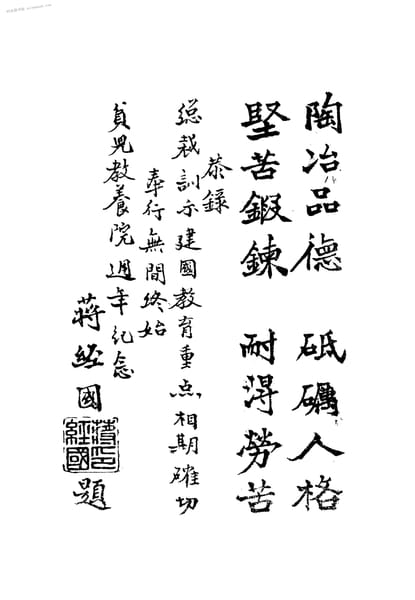 陶冶品德 砥礪人格
堅苦鍛鍊 耐得勞苦
恭錄
總裁訓示建國教育重點相期確切
奉行無間終始
貧兒教養院週年紀念
蔣經國題
蔣經國印